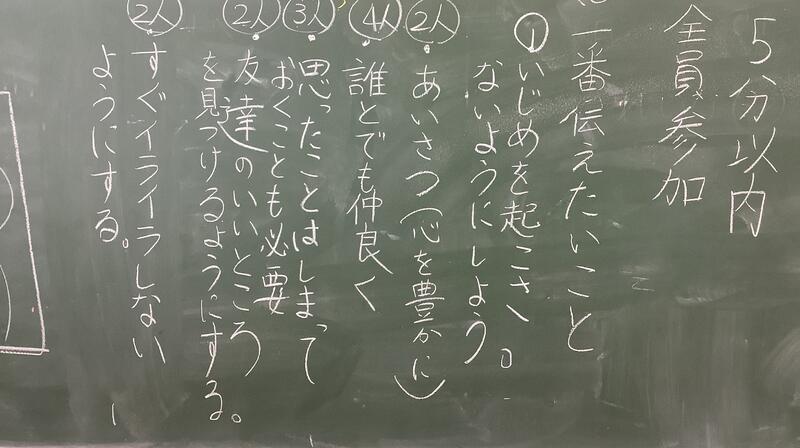 5分以内
全員参加
一番伝えたいこと
①いじめを起こさ
ないようにしよう。
2人
・あいさつ（心を豊かに）
4人
・誰とでも仲良く
3人
・思ったことはしまって
おくことも必要
2人
・友達のいいところ
を見つけるようにする。
2人
・すぐイライラしない
ようにする。